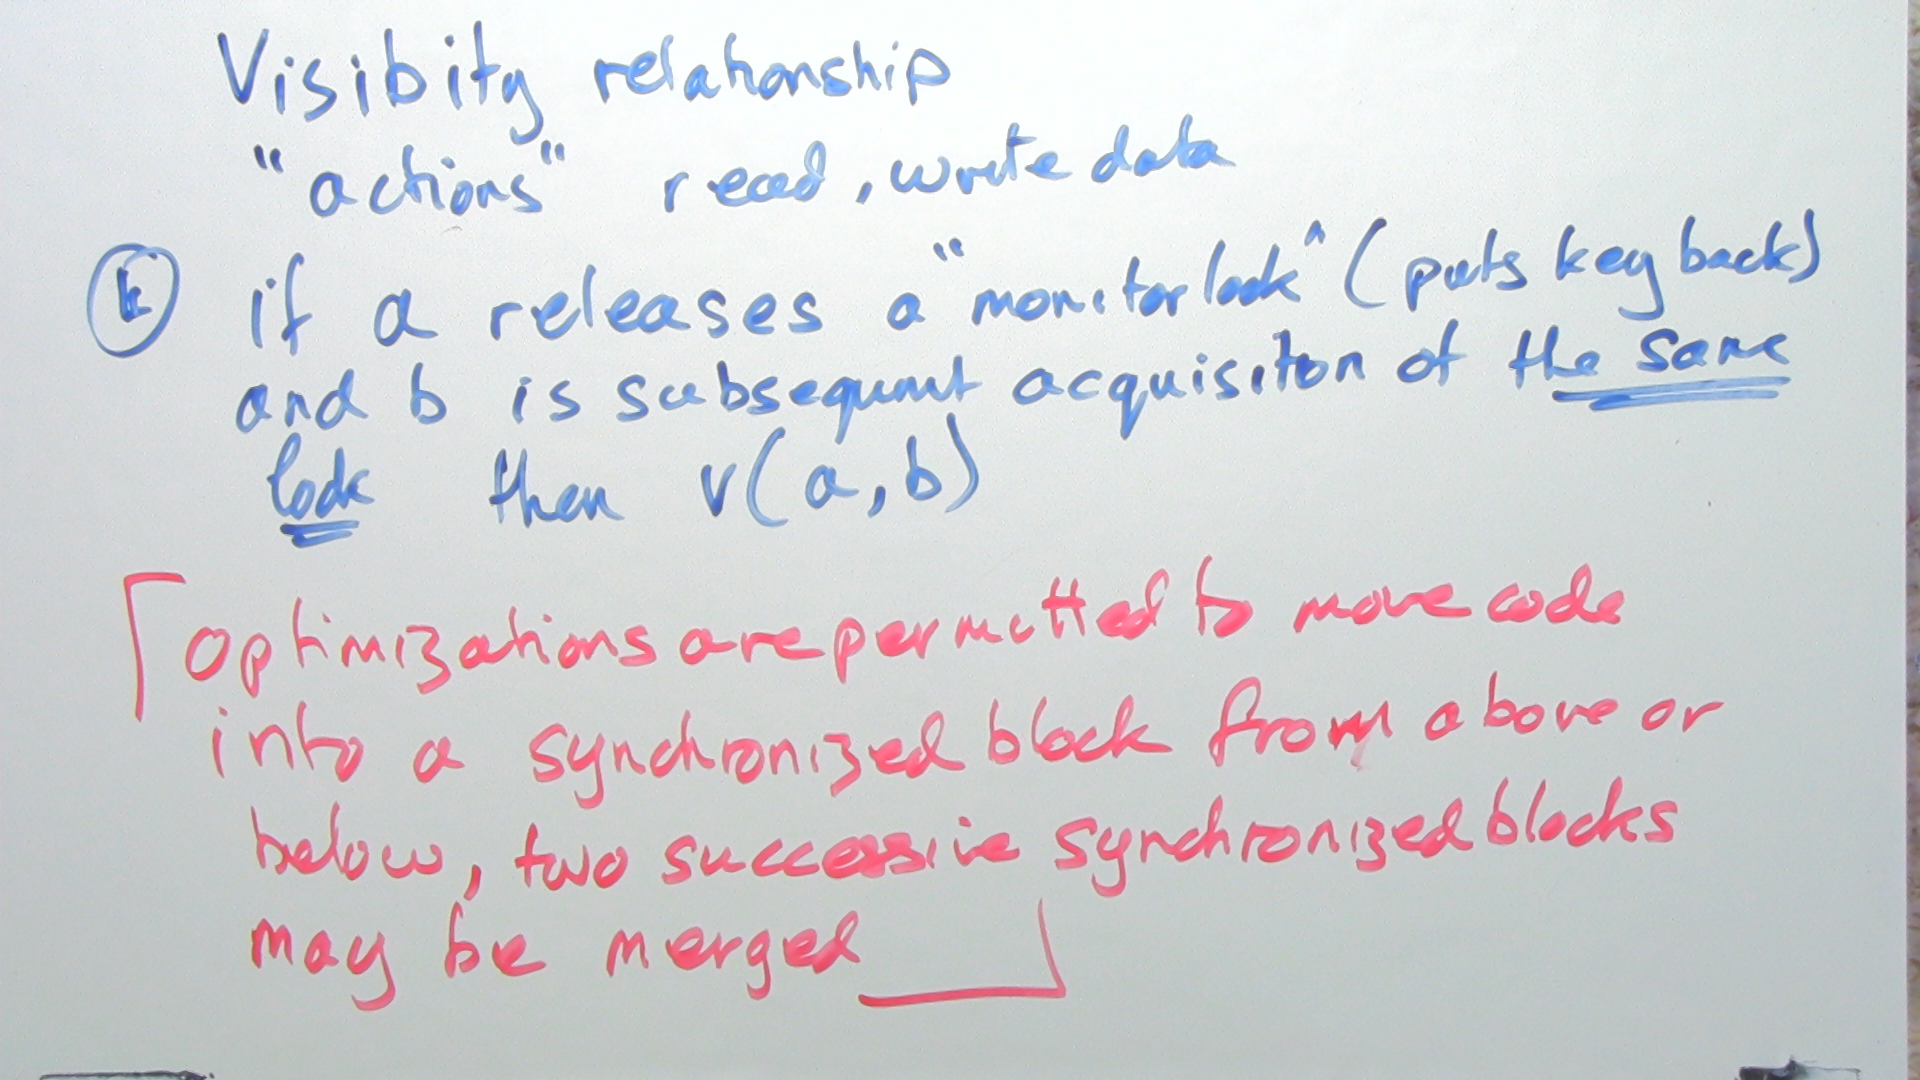 Visibity relationship
"actions" read, write data
k if a releases a "monitor lock" (puts key back)
and b is subsequent acquisiton of the same
lock then v(a,b)
Optimizations are permitted to move code
into a synchronized block from above or
below, two successive synchronized blocks
may be merged